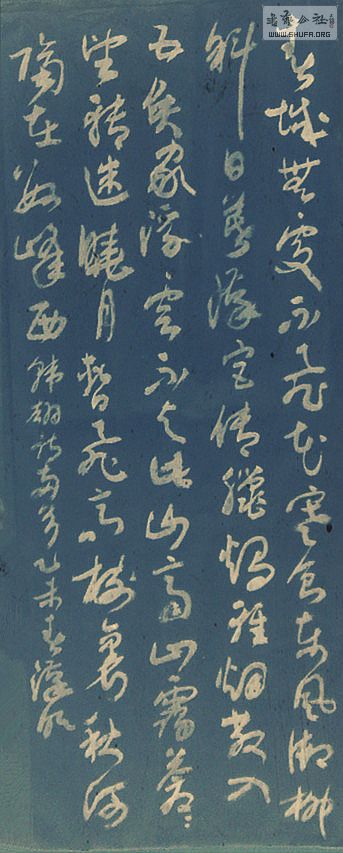 春城無處不飛花寒食東風御柳
斜日暮漢宮傳臘燭輕烟散入
五侯家浮雲不共此山齊山靄蒼々
望轉迷曉月暫飛高樹裏秋河
隔在數峰西韓翃詩兩首乙未春
WWW.SHUFA.ORG